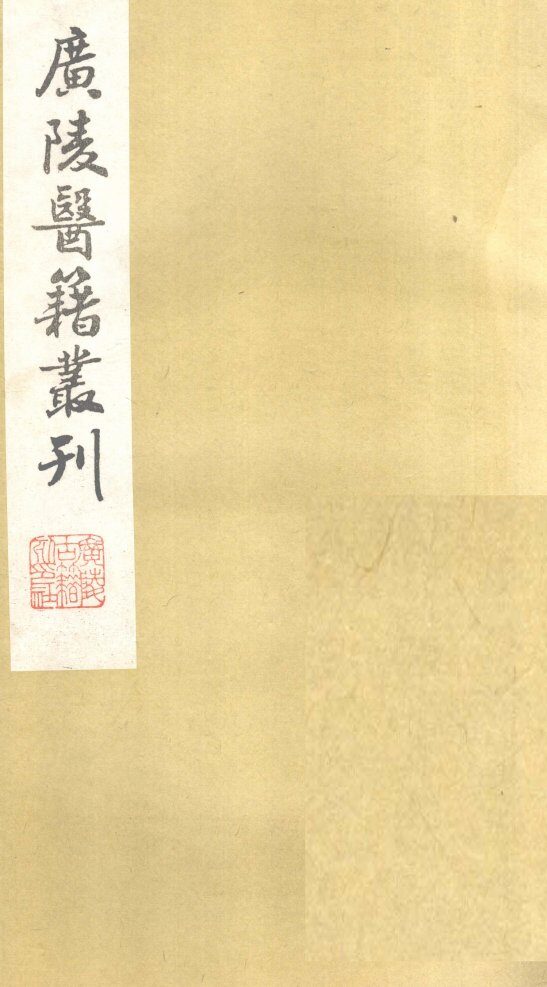 廣陵醫籍叢刊
廣陵
古籍
印社